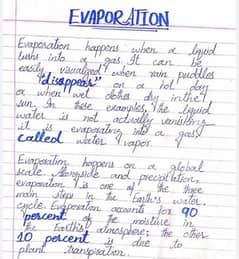 EVAPORATION
Evaporation happens when a liquid
turns into a gas. It can be
easily visualized when rain puddles
"disappear" on a hot day
or when wet clothes dry in the
sun. In these examples, the liquid
water is not actually vanishing
it is evaporating into a gas,
called water vapor.
Evaporation happens on a global
scale. Alongside and precipitation,
evaporation is one of the three
main steps in the Earth's water
cycle. Evaporation accounts for 90
percent of the moisture in
the Earth's atmosphere; the other
10 percent is due to
plant transpiration.